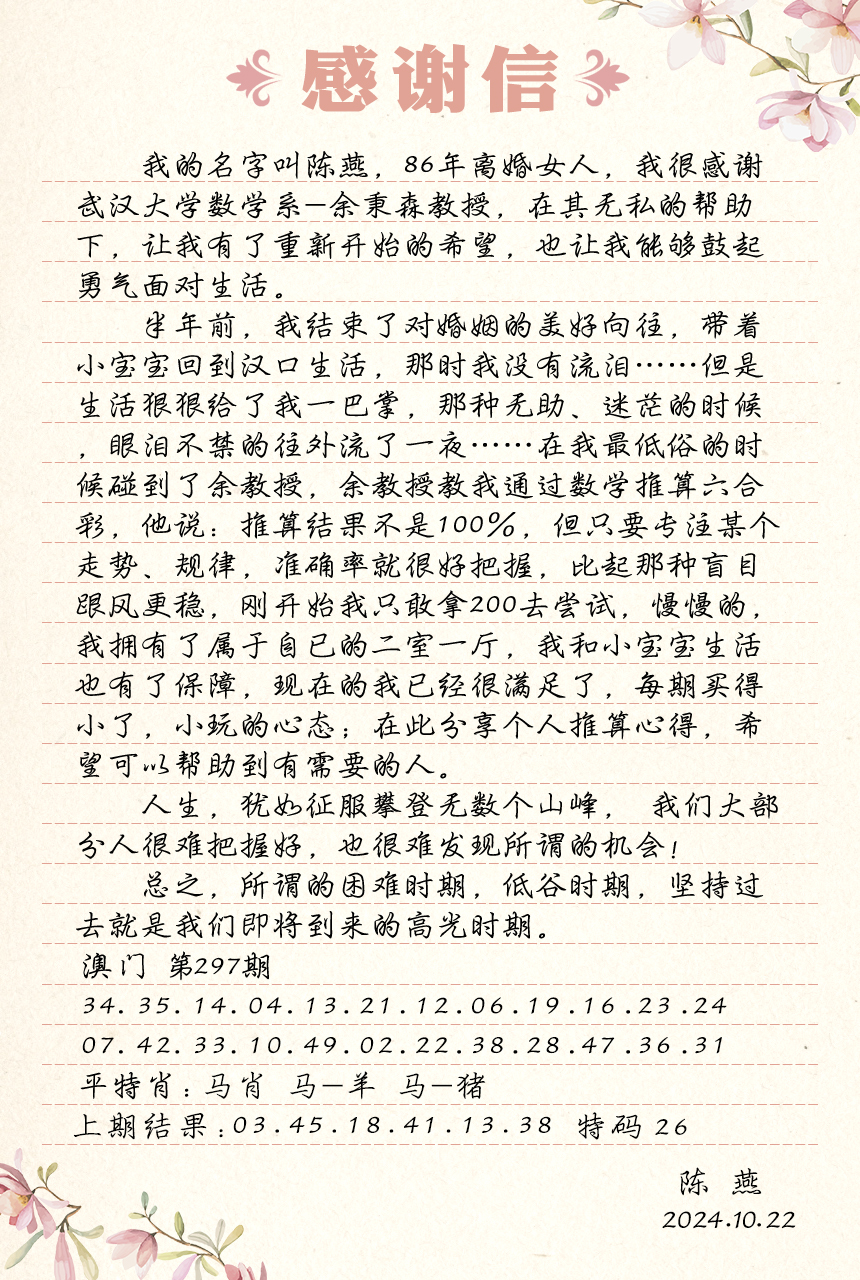 感谢信
我的名字叫陈燕，86年离婚女人，我很感谢
武汉大学数学系—余秉森教授，在其无私的帮助
下，让我有了重新开始的希望，也让我能够鼓起
勇气面对生活。
半年前，我结束了对婚姻的美好向往，带着
小宝宝回到汉口生活，那时我没有流泪……但是
生活狠狠给了我一巴掌，那种无助、迷茫的时候
，眼泪不禁的往外流了一夜……在我最低俗的时
候碰到了余教授，余教授教我通过数学推算六合
彩，他说：推算结果不是100%，但只要专注某个
走势、规律，准确率就很好把握，比起那种盲目
跟风更稳，刚开始我只敢拿200去尝试，慢慢的，
我拥有了属于自已的二室一厅，我和小宝宝生活
也有了保障，现在的我已经很满足了，每期买得
小了，小玩的心态；在此分享个人推算心得，希
望可以帮助到有需要的人。
人生，犹如征服攀登无数个山峰， 我们大部
分人很难把握好，也很难发现所谓的机会！
总之，所谓的困难时期，低谷时期，坚持过
去就是我们即将到来的高光时期。
澳门 第297期
34.35.14.04.13.21.12.06.19.16.23.24
07.42.33.10.49.02.22.38.28.47.36.31
平特肖：马肖 马—羊 马—猪
上期结果：03.45.18.41.13.38 特码 26
陈 燕
2024.10.22